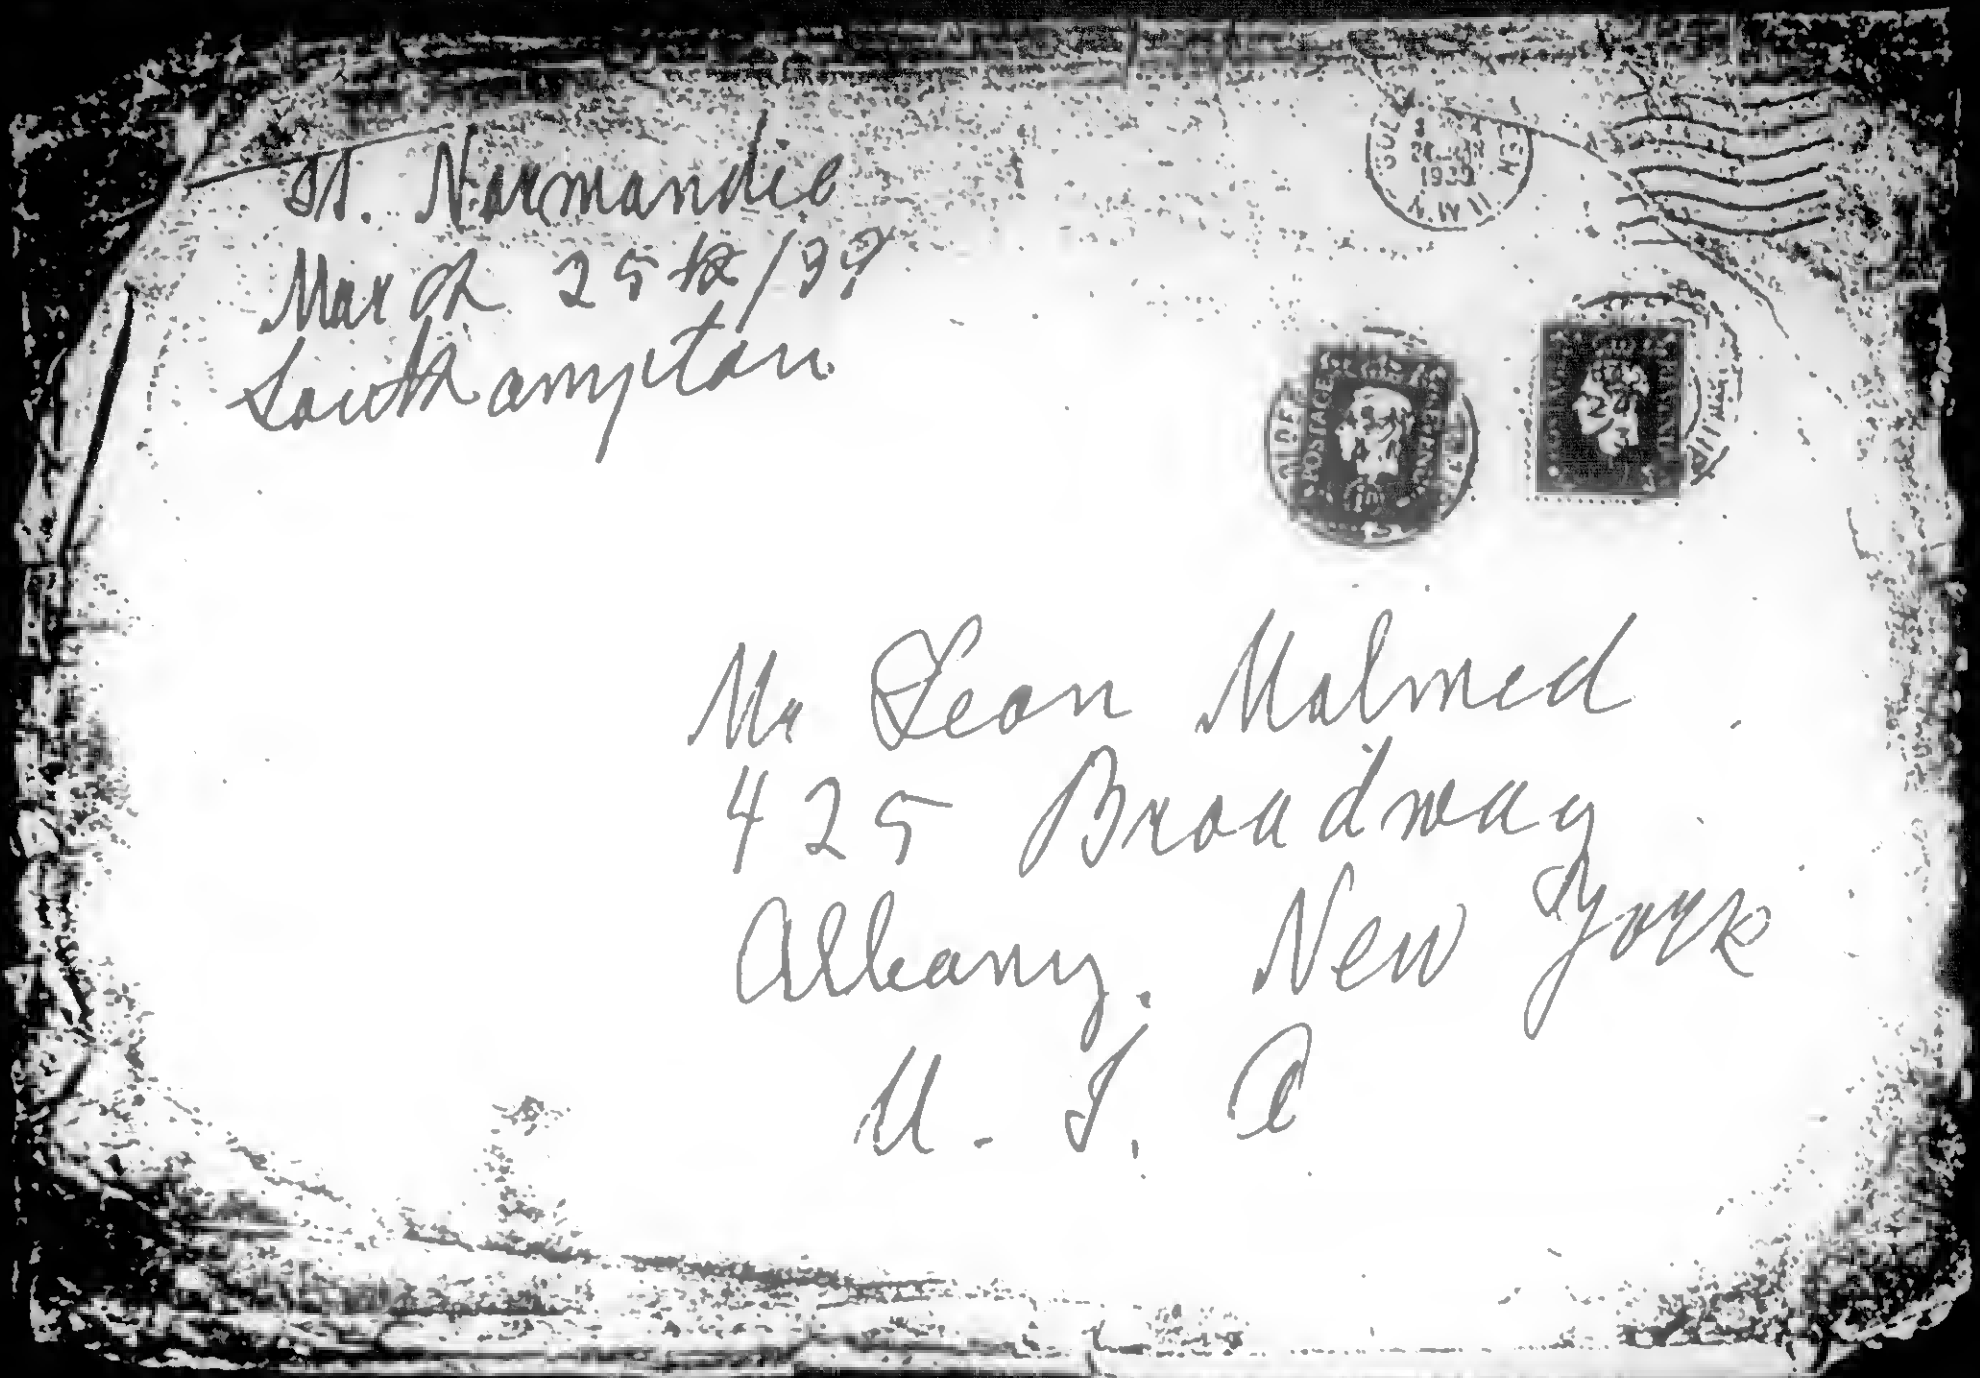 St. Normandie
March 25th/39
Southampton
1939
N.W.11
POSTAGE
24
3
Mr Leon Malmed
425 Broadway
Albany. New York
U. S. A